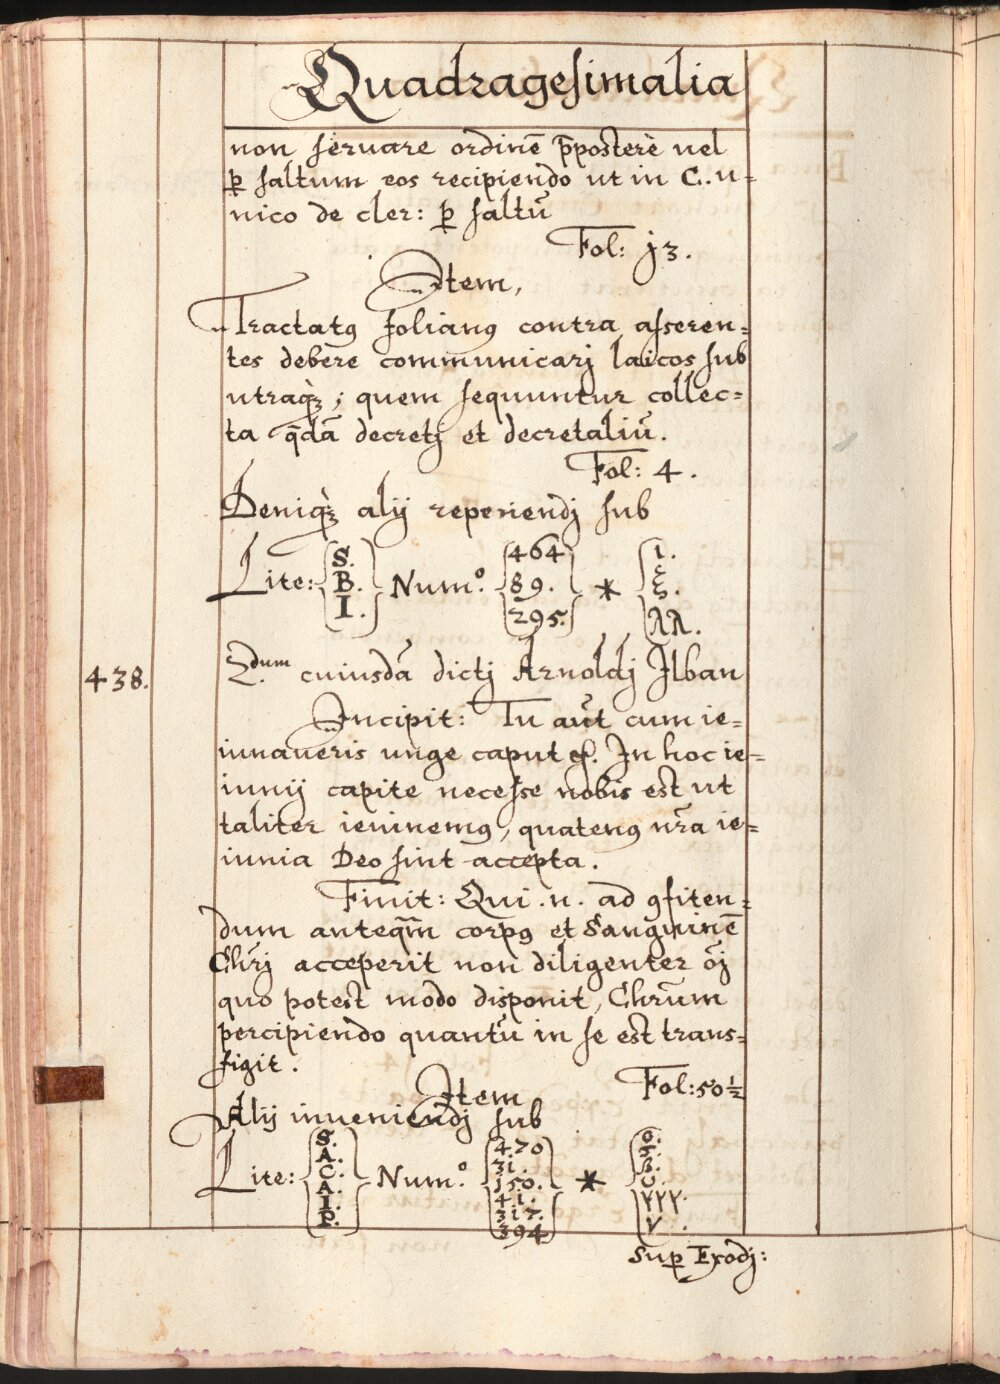 Quadragesimalia
non seruare ordinē p̄posterè uel
ꝑ saltum eos recipiendo ut in C. u=
nico de cler: ꝑ saltū
Fol: j3.
Item,
Tractatꝯ Jolianꝯ contra asseren=
tes debere communicarj laicos sub
utraqꝫ; quem sequuntur collec=
ta q̄dā decretj et decretaliū.
Fol: 4.
Deniqꝫ alij reperiendj sub
Lite: S. B. I. Num.º 464 89. 295. * 1. ξ. λλ.
2.dum cuiusdā dictj Arnoldj Ilban
438.
Incipit: Tu aut̄ cum ie=
iunaueris unge caput &. In hoc ie=
iunij capite necesse nobis est ut
taliter ieiunemꝯ, quatenꝯ nr̄a ie=
iunia Deo sint accepta.
Finit: Qui .n. ad ꝯfiten=
dum anteq̄m corpꝯ et Sanguinē
Chrj acceperit non diligenter oj̄
quo potest modo disponit, Chrūm
percipiendo quantū in se est trans=
figit.
Fol: 50½
Item
Alij inueniendj sub
Lite: S. A. C. A. I. P. Num.º 470 31. j50. 41. 317. 394 *
Suꝑ Exodj: